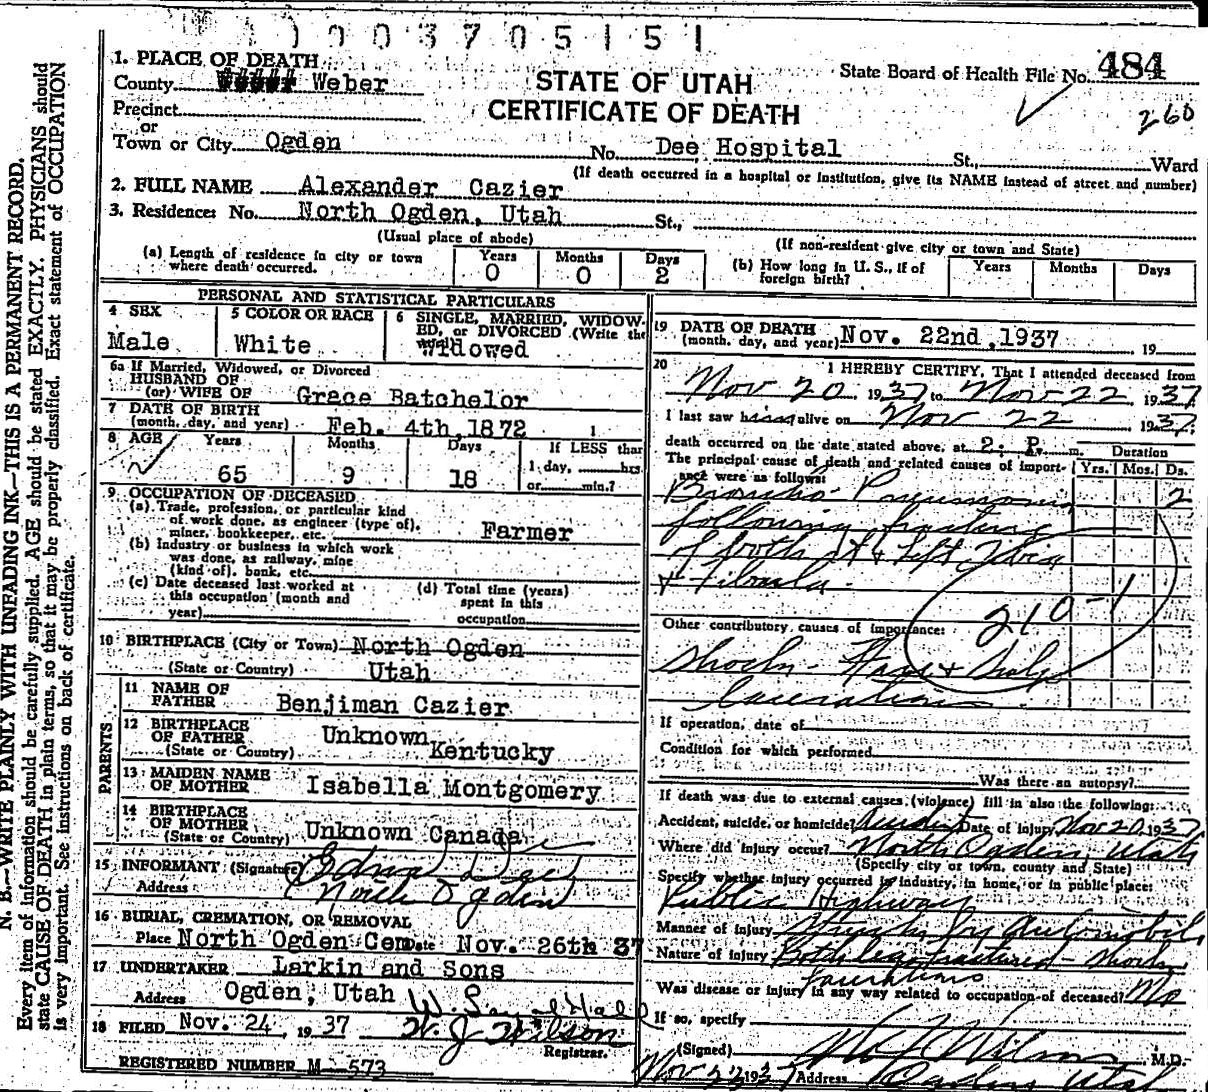 0 0 3 7 0 5 1 5 1
1. PLACE OF DEATH
County Weber
STATE OF UTAH
CERTIFICATE OF DEATH
State Board of Health File No. 484
260
Precinct
or
Town or City Ogden No. Dee Hospital St., Ward
(If death occurred in a hospital or institution, give its NAME instead of street and number)
2. FULL NAME Alexander Cazier
3. Residence: No. North Ogden, Utah St.,
(Usual place of abode)
(If non-resident give city or town and State)
(a) Length of residence in city or town where death occurred. Years 0 Months 0 Days 2
(b) How long in U. S., if of foreign birth? Years Months Days
PERSONAL AND STATISTICAL PARTICULARS
4 SEX Male
5 COLOR OR RACE White
6 SINGLE, MARRIED, WIDOWED, or DIVORCED (Write the Widowed
6a If Married, Widowed, or Divorced
HUSBAND OF
(or) WIFE OF Grace Batchelor
7 DATE OF BIRTH
(month, day, and year) Feb. 4th, 1872
8 AGE Years 65 Months 9 Days 18 If LESS than 1 day, hrs. or min.?
9 OCCUPATION OF DECEASED
(a) Trade, profession, or particular kind
of work done, as engineer (type of),
miner, bookkeeper, etc. Farmer
(b) Industry or business in which work
was done, as railway, mine
(kind of), bank, etc.
(c) Date deceased last worked at
this occupation (month and
year)
(d) Total time (years)
spent in this
occupation
10 BIRTHPLACE (City or Town) North Ogden
(State or Country) Utah
PARENTS
11 NAME OF
FATHER Benjiman Cazier
12 BIRTHPLACE
OF FATHER Unknown
(State or Country) Kentucky
13 MAIDEN NAME
OF MOTHER Isabella Montgomery
14 BIRTHPLACE
OF MOTHER
(State or Country) Unknown Canada
15 INFORMANT (Signature)
Address North Ogden
16 BURIAL, CREMATION, OR REMOVAL
Place North Ogden Cem Date Nov. 26th 37
17 UNDERTAKER Larkin and Sons
Address Ogden, Utah
18 FILED Nov. 24, 1937 W. J. Wilson
Registrar.
REGISTERED NUMBER M 573
19 DATE OF DEATH
(month, day, and year) Nov. 22nd, 1937 19
20 I HEREBY CERTIFY, That I attended deceased from
Nov 20 1937 to Nov 22 1937
I last saw him alive on Nov 22 1937
death occurred on the date stated above, at 2: P. m.
Duration
Yrs. Mos. Ds.
The principal cause of death and related causes of importance were as follows:
Broncho Pneumonia 2
following fracture
of both rt & left Tibia
& Fibula.
210-1
Other contributory causes of importance:
Shock - Face & Scalp
lacerations
If operation, date of
Condition for which performed
Was there an autopsy?
If death was due to external causes (violence) fill in also the following:
Accident, suicide, or homicide? Accident Date of injury Nov 20 1937
Where did injury occur? North Ogden, Utah
(Specify city or town, county and State)
Specify whether injury occurred in industry, in home, or in public place:
Public Highway
Manner of injury Struck by automobile
Nature of injury Both legs fractured - shock
lacerations
Was disease or injury in any way related to occupation of deceased? No
If so, specify
(Signed) W J Wilson M.D.
Nov 23 1937 Address Ogden Utah
N. B.—WRITE PLAINLY WITH UNFADING INK—THIS IS A PERMANENT RECORD.
Every item of information should be carefully supplied. AGE should be stated EXACTLY. PHYSICIANS should
state CAUSE OF DEATH in plain terms, so that it may be properly classified. Exact statement of OCCUPATION
is very important. See instructions on back of certificate.